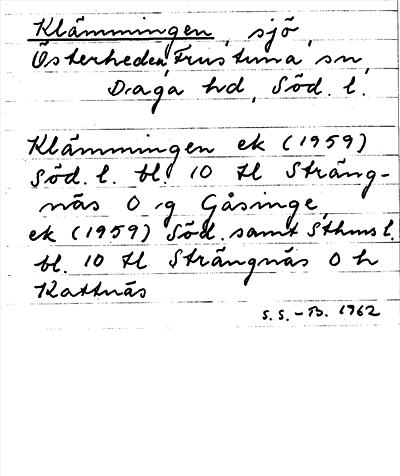 Klämmingen, sjö,
Österheden, Frustuna sn,
Daga hd, Söd. l.
Klämmingen ek (1959)
Söd. l. bl. 10 H Sträng-
näs O g Gåsinge,
ek (1959) Söd. samt Sthms l.
bl. 10 H Strängnäs O h
Kattnäs
S. S. - B. 1962